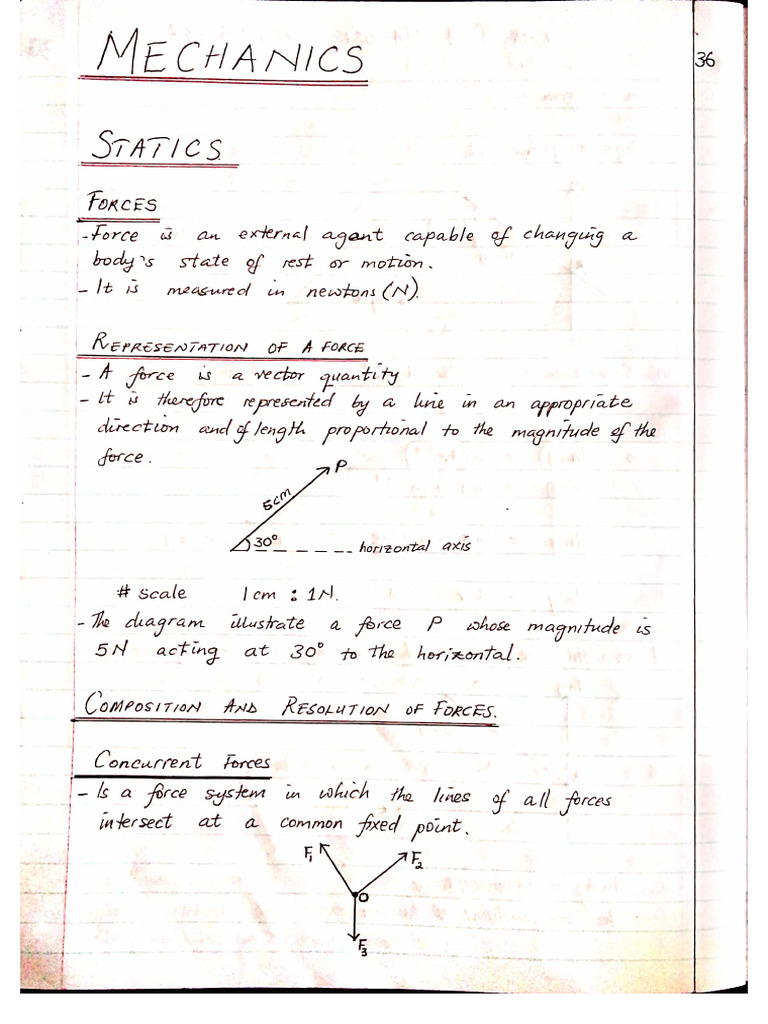 MECHANICS
36
STATICS
FORCES
- Force is an external agent capable of changing a
body's state of rest or motion.
- It is measured in newtons (N).
REPRESENTATION OF A FORCE
- A force is a vector quantity
- It is therefore represented by a line in an appropriate
direction and of length proportional to the magnitude of the
force.
P
5cm
30° horizontal axis
# scale 1cm : 1N.
- The diagram illustrate a force P whose magnitude is
5N acting at 30° to the horizontal.
COMPOSITION AND RESOLUTION OF FORCES.
Concurrent Forces
- Is a force system in which the lines of all forces
intersect at a common fixed point.
F₁ F₂
O
F₃